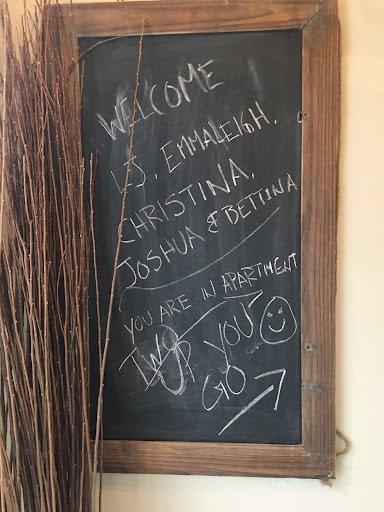 WELCOME
LJ, EMMALEIGH,
CHRISTINA,
JOSHUA & BETTINA
YOU ARE IN APARTMENT
TWO
UP YOU
GO